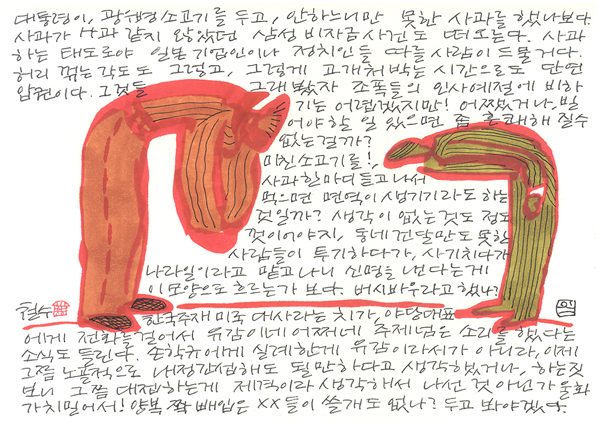 대통령이, 광우병 소고기를 두고, 안하느니만 못한 사과를 했나보다.
사과가 사과 같지 않았던 삼성 비자금사건도 떠오른다. 사과
하는 태도로야 일본 기업인이나 정치인들 따를 사람이 드물거다.
허리 꺾는 각도도 그렇고, 그렇게 고개처박는 시간으로도 단연
압권이다. 그것들 그래봤자 조폭들의 인사예절에 비하
기는 어렵겠지만! 어쨌거나, 빌
어야할 일 있으면 좀 흔쾌해 질수
없는걸까?
미친소고기를!,
사과 한마디 듣고나서
먹으면 면역이 생기기라도 하는
것일까? 생각이 없는것도 정도
것이어야지, 동네건달만도 못한
사람들이 투기하다가, 사기치다가
나라일이라고 맡고나니 신명을 낸다는게
이모양으로 흐르는가 보다. 버시바우라고 했나?
철수
한국주재 미국 대사라는 치가, 야당대표
에게 전화를걸어서 유감이네 어쩌네 주제넘은 소리를 했다는
소식도 들린다. 손학규에게 실례한게 유감이라서가 아니라, 이제
그쯤 노골적으로 내정간섭해도 될만하다고 생각했겠거나, 하는짓
보니 그쯤 대접하는게 제격이라 생각해서 나선 것 아닌가 울화
가치밀어서! 양복 짝 빼입은 XX들이 쓸개도 없나? 두고 봐야겠다.